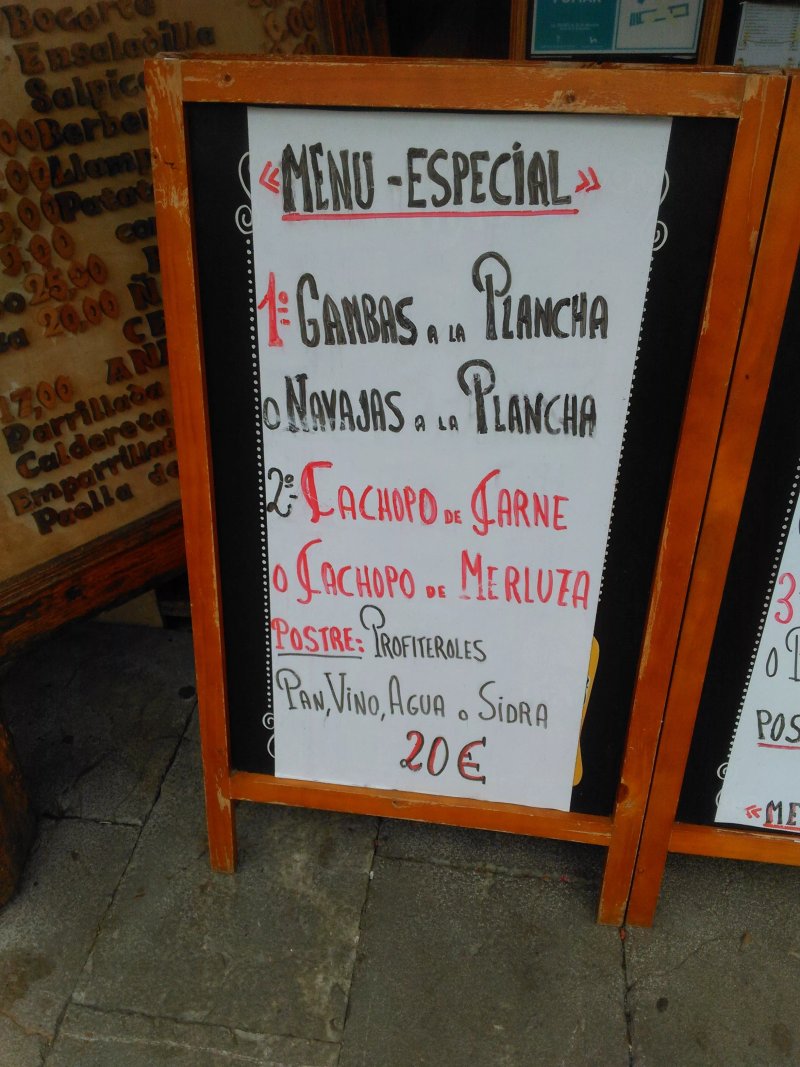 Bocarte
Ensaladilla
Salpic
Berbe
Llamp
Patat
9,00
25,00
20,00
17,00
Parrillada
Caldereta
Emparrillad
Paella de
«MENU - ESPECIAL»
1º= GAMBAS A LA PLANCHA
O NAVAJAS A LA PLANCHA
2º- CACHOPO DE CARNE
O CACHOPO DE MERLUZA
POSTRE: PROFITEROLES
PAN, VINO, AGUA O SIDRA
20 €
3
O
POS
«ME